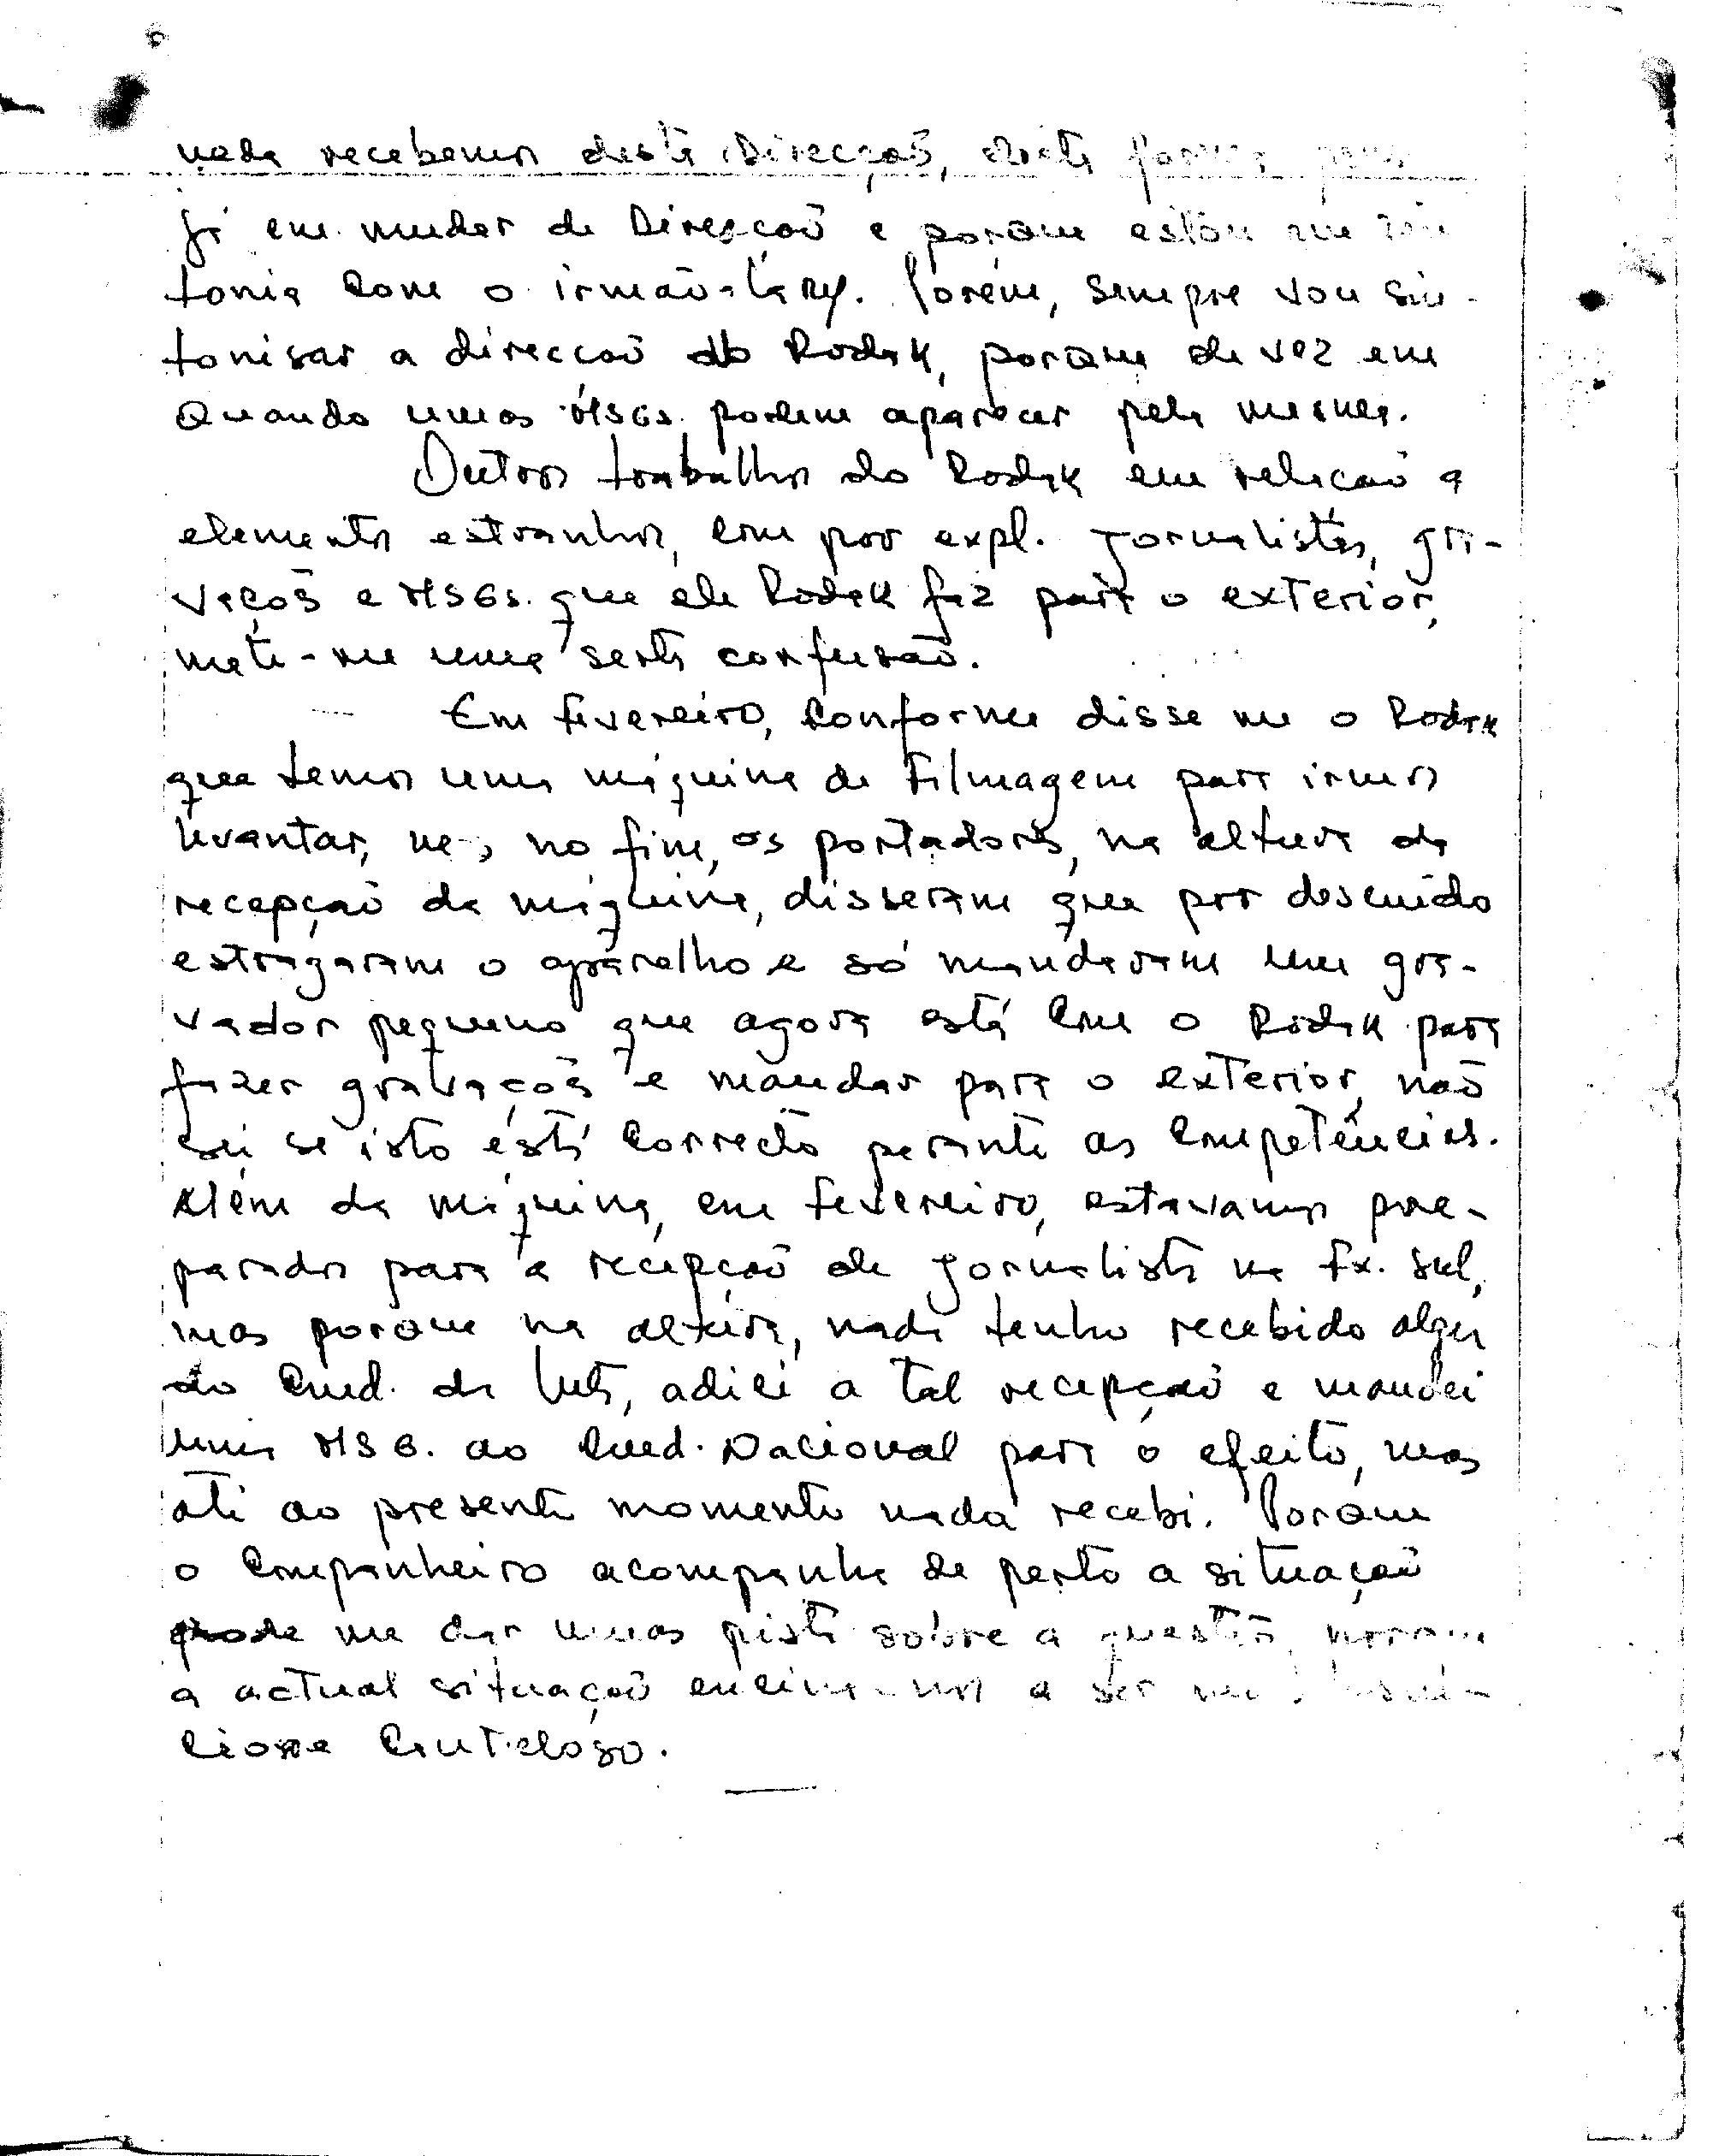 nada recebemos desta Direcção, desta forma
já em mudar de Direcção e porque estou em
tonia com o irmão-Lary. Porém, sempre vou sin-
tonisar a direcção do Rodak, porque de vez em
Quando umas MSGs. podem aparecer pela mesma.
Outros trabalhos do Rodak em relação a
elementos estranhos, com por expl. jornalistas, gra-
vaçõs e MSGs. que ele Rodak faz para o exterior,
mete-me uma serta confusão.
Em fevereiro, conforme disse me o Rodak
que temos uma máquina de Filmagem para irmos
levantar, no fim, os portadores, na altura da
recepção da máquina, disseram que por descuido
estragaram o aparelho e só mandaram um gra-
vador pequeno que agora está com o Rodak para
fazer gravaçõs e mandar para o exterior, não
sei se isto está correcto perante as competências.
Além da máquina, em fevereiro, estavamos pre-
parados para a recepção de jornalista na Fx. Sul,
mas porque na altura, nada tenho recebido algu
do Cmd. da Luta, adiei a tal recepção e mandei
uma MSG. ao Cmd. Nacional para o efeito, mas
até ao presente momento nada recebi. Porque
o Companheiro acompanha de perto a situação
pode me dar umas pista sobre a questão, porque
a actual situação encina-nos a ser
cauteloso.